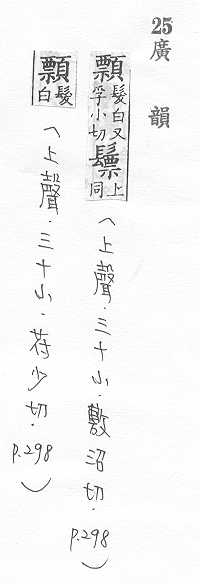 25 廣韻
顠髮白又孚小切 上同(上聲·三十小·敷沼切·p.298)
顠髮白(上聲·三十小·苻少切·p.298)